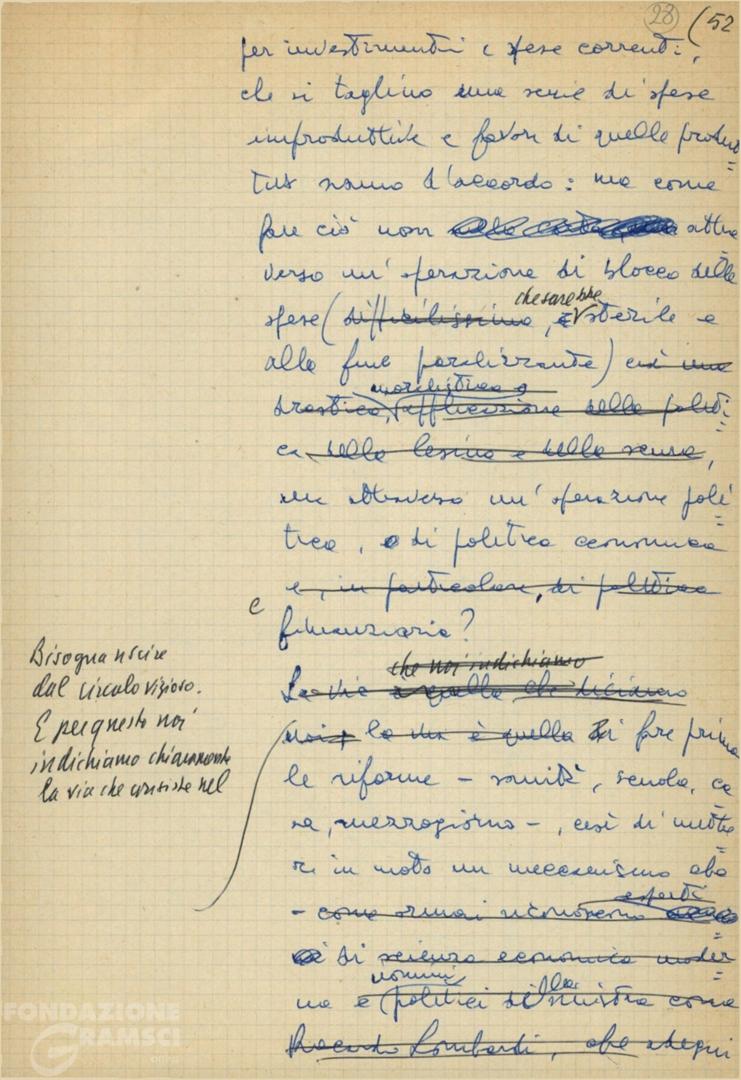 28 (52
per investimenti e spese correnti,
che si taglino una serie di spese
improduttive e favore di quelle produt
tive siamo d'accordo: ma come
fare ciò non attra
verso un'operazione di blocco delle
che sarebbe
spese (difficilissima, e sterile e
alla fine paralizzante) una
moralistica e
drastica, applicazione della politi
ca della lesina e della scure,
ma attraverso un'operazione poli
tica, e di politica economica
e, in particolare, di politica
e
finanziaria?
Bisogna uscire
dal circolo vizioso.
E per questo noi
indichiamo chiaramente
la via che consiste nel
che noi indichiamo
La via è quella che diciamo
noi, la via è quella di fare prima
le riforme - sanità, scuola, ca
sa, mezzogiorno -, così di mette
re in moto un meccanismo che
esperti
- come ormai riconoscono
di scienza economica moder
uomini della
na e politici di sinistra come
Riccardo Lombardi, che adegui
FONDAZIONE
GRAMSCI